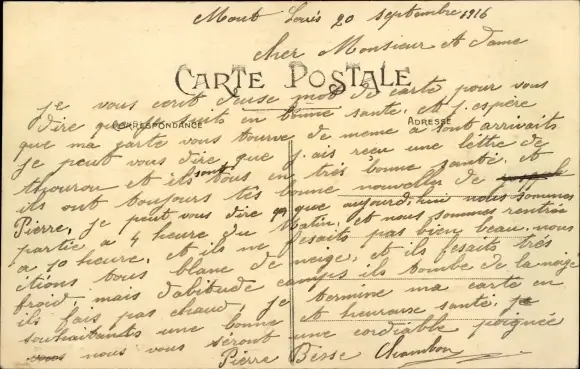 Mont Louis 20 septembre 1916
cher Monsieur et dame
CARTE POSTALE
CORRESPONDANCE
ADRESSE
je vous ecrit deuse mot de carte pour vous
dire que je suits en bonne sante. et j'espère
que ma carte vous trouve de meme a tout arrivaits
je peut vous dire que j'ais reçu une lettre de
et ils sont tous en très bonne santé. et
ils ont toujours tès bonne nouvelle de
Pierre, je peut vous dire que aujourd'hui nous sommes
partie a 4 heure du Matin, et nous sommes rentrée
a 10 heure, et ils ne fesaits pas bien beau, nous
étions tous blanc de neige, et ils fesaits très
froid, mais dabitude ils tombe de la neige
ils fais pas chaud, je termine ma carte en
souhaitants une bonne et heureuse santé. je
nous vous seront une cordiable poignée
Pierre Besse Chambon